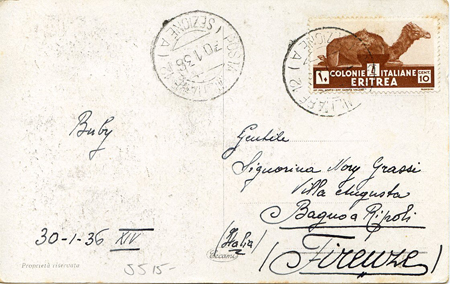 POSTA MILITARE N.
30.1.36
(SEZIONE A)
COLONIE ITALIANE
ERITREA
CENT 10
Buby
Gentile
Signorina Nory Grassi
Villa Augusta
Bagno a Ripoli
(Italia)
(Firenze)
30-1-36 XIV
Proprietà riservata
5515-